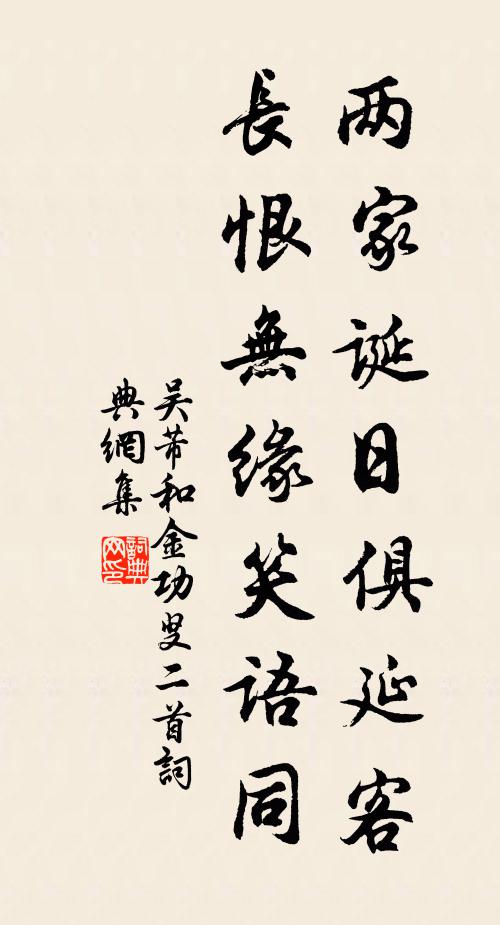 两家诞日俱延客
長恨無緣笑語同
吴芾和金功叟二首詞
典網集
詞典网印